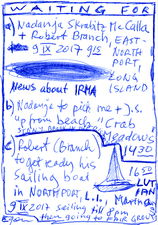 WAITING FOR
a) Nadanja Skrabitz McCalla
+ Robert Branch, EAST-
9 IX 2017 9:15 NORTH
PORT,
LONG
ISLAND
News about IRMA
b) Nadanja to pick me + J.S.
up from beach "Crab
Meadow"
14 30
c) Robert (Branch
to get ready his
sailing boat
in NORTHPORT, L.I.,
16 50
9 IX 2017 sailing till 8pm
then going to FAIR GROUND